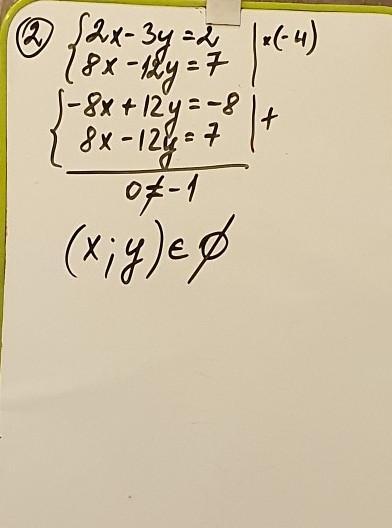 ② { 2x - 3y = 2 | ×(-4)
{ 8x - 12y = 7 |
{ -8x + 12y = -8 | +
{ 8x - 12y = 7 |
0 ≠ -1
(x; y) ∈ ∅